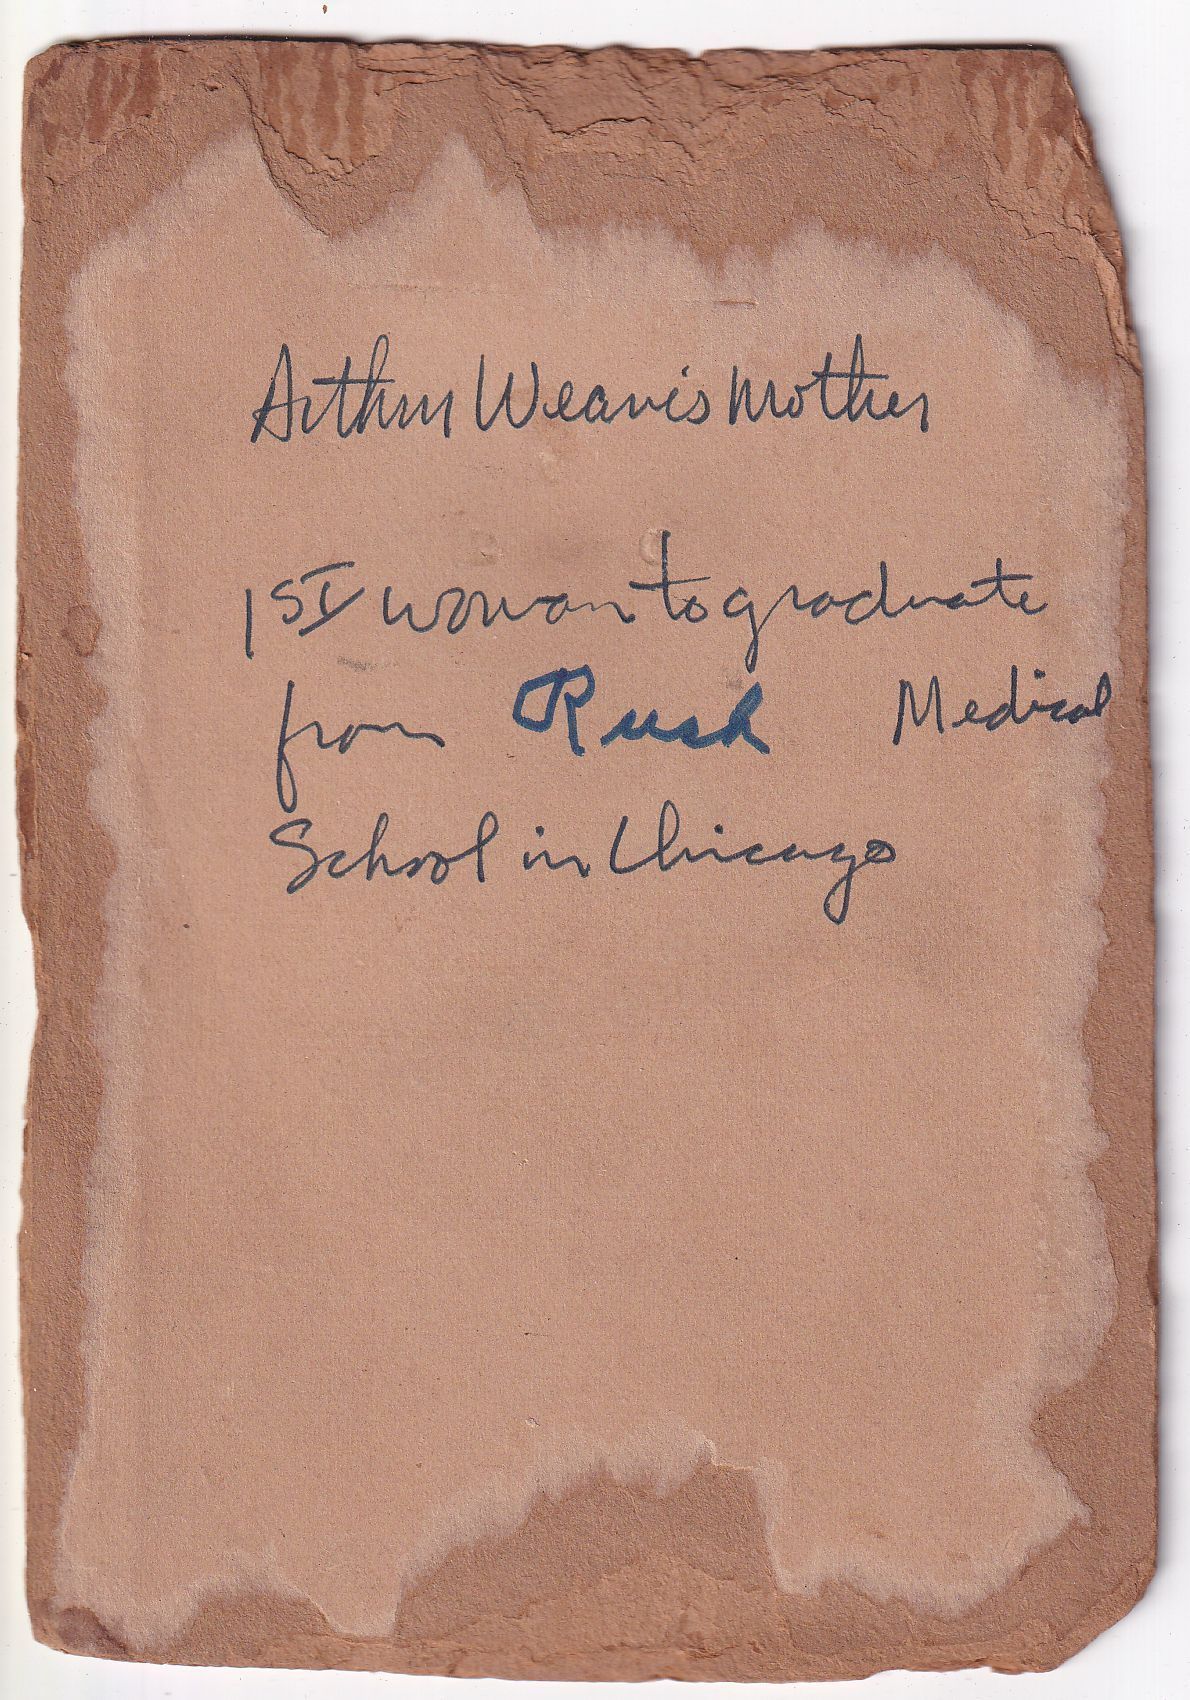 Arthur Weaver's Mother
1ST woman to graduate
from Rush Medical
School in Chicago